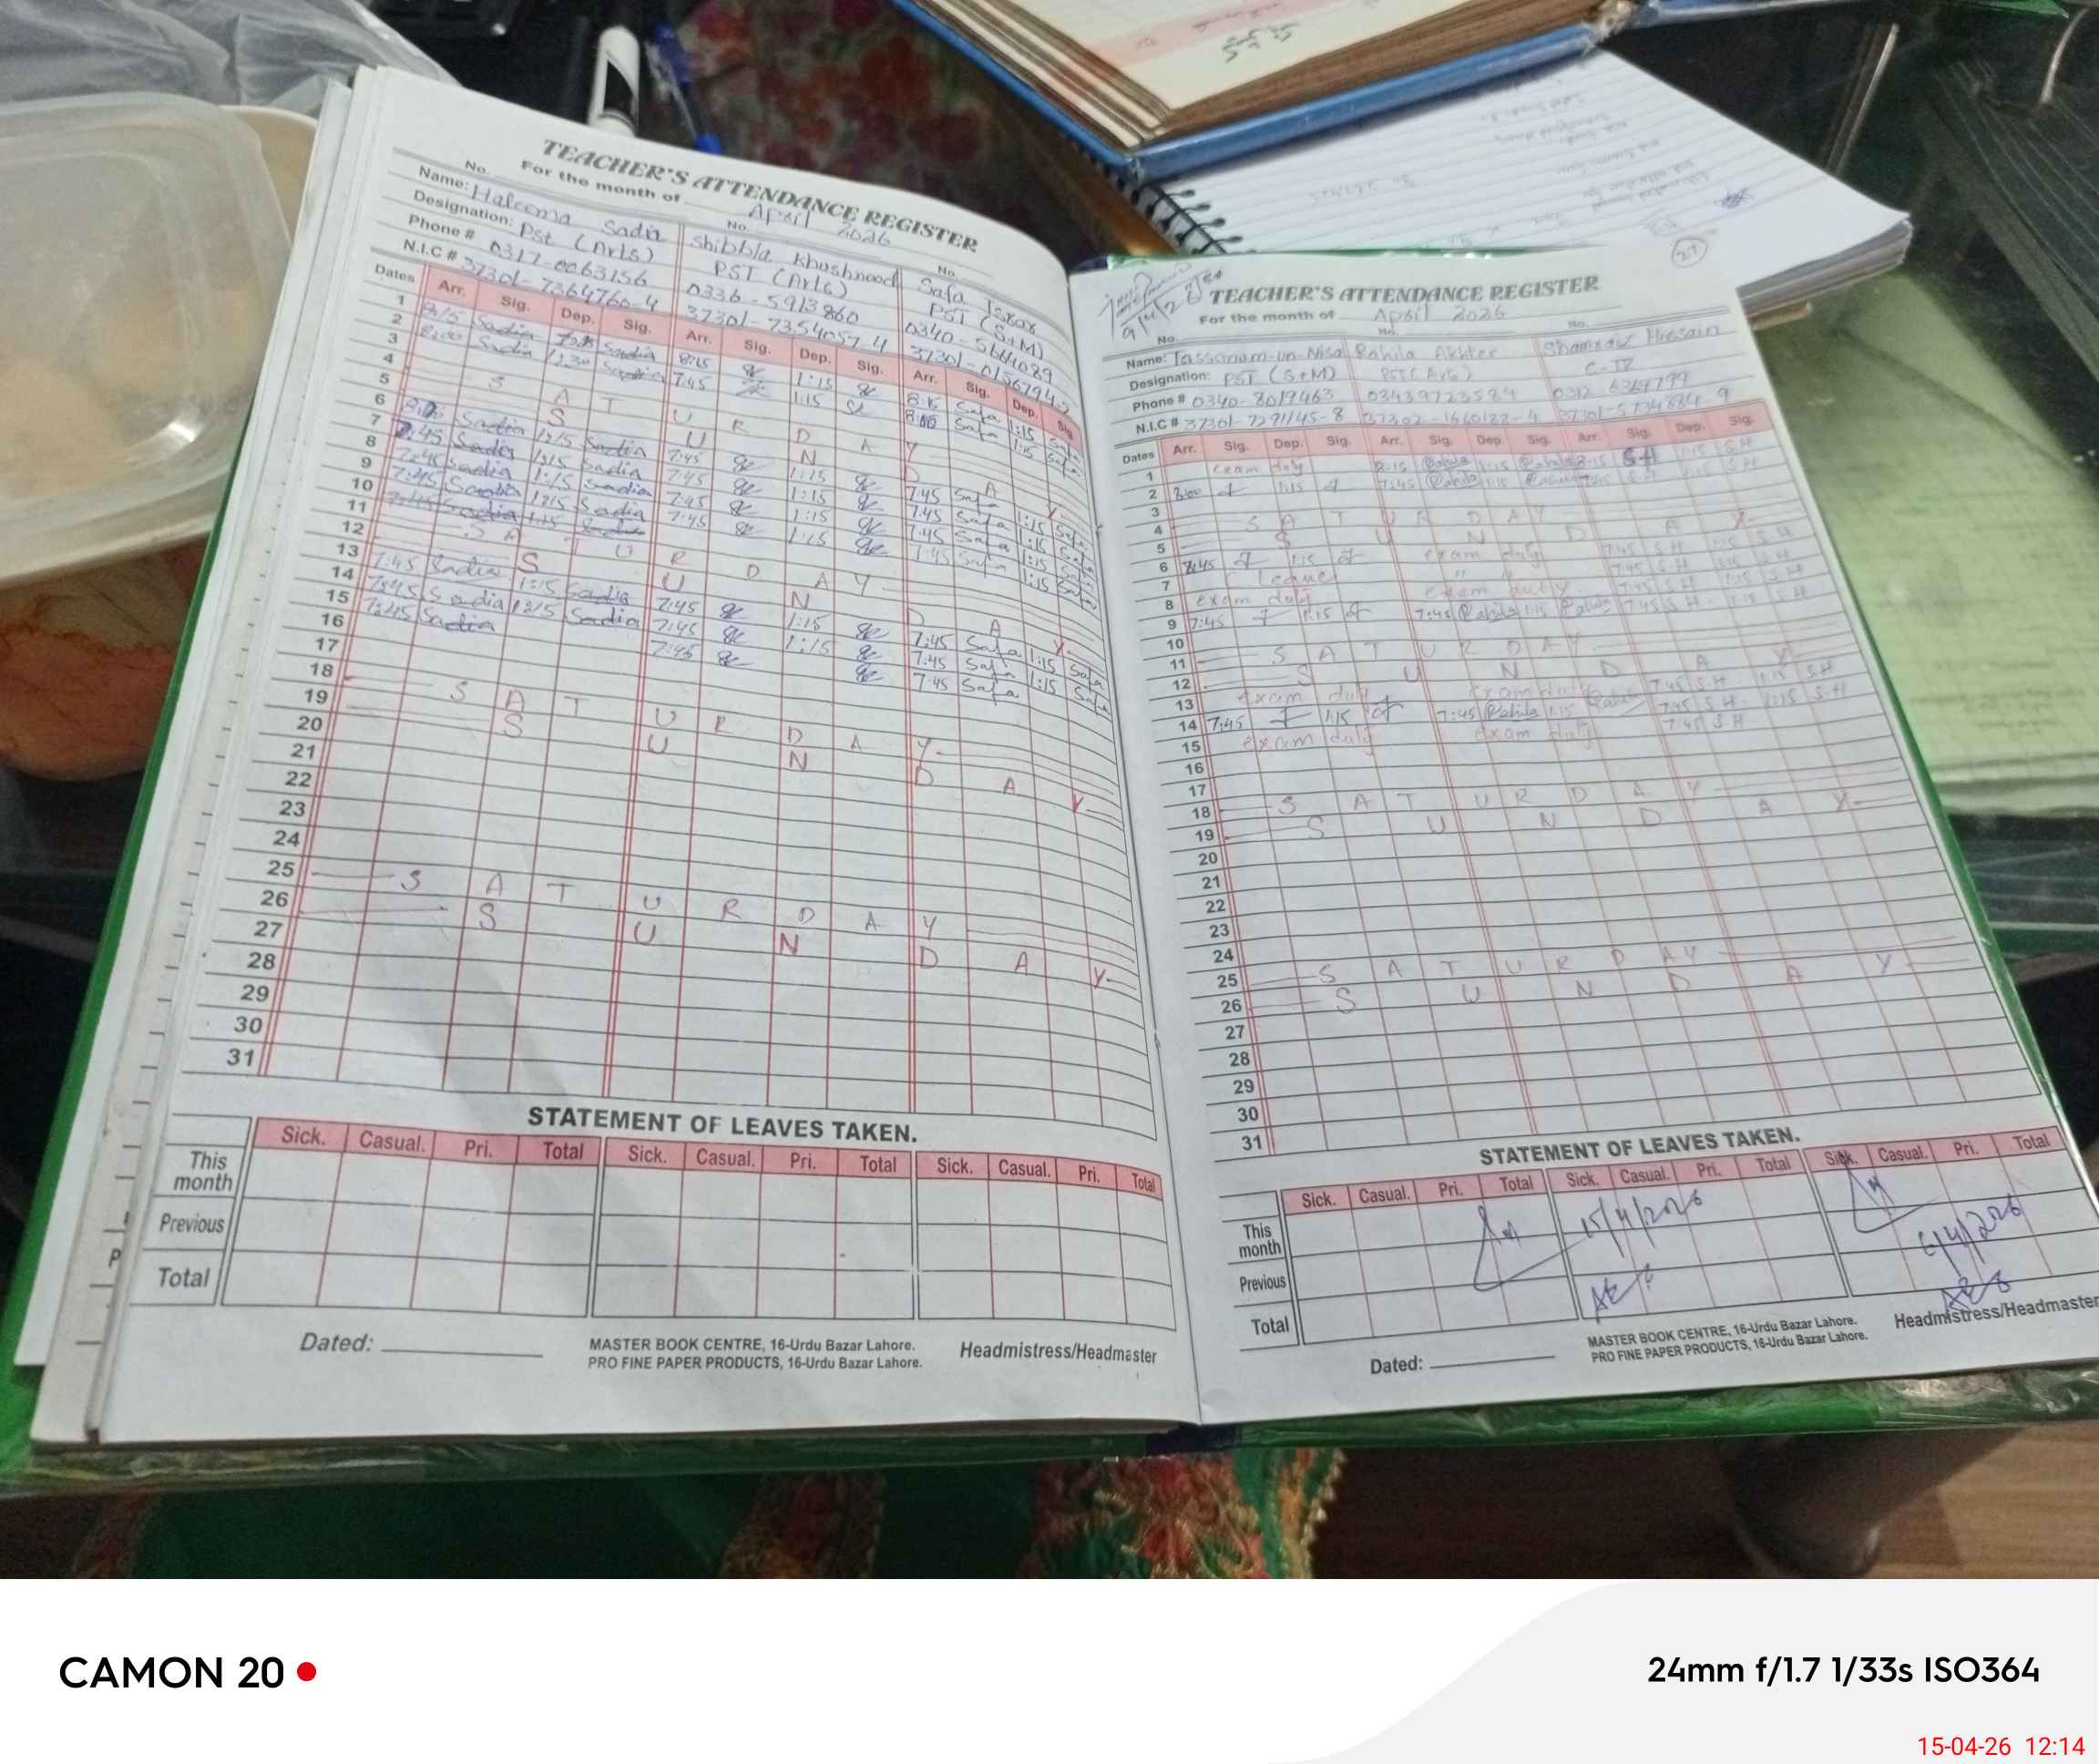 TEACHER'S ATTENDANCE REGISTER
For the month of April 2026
No. No. No.
Name: Haleema Sadia Shibbla Khushnood Safa Israr
Designation: Pst (Arts) PST (Arts) PST (S+M)
Phone # 0317-0063156 0336-5913860 0340-5664089
N.I.C # 37301-7364760-4 37301-7354057-4
Dates Arr. Sig. Dep. Sig. Arr. Sig. Dep. Sig. Arr. Sig. Dep. Sig.
1 8:15 Sadia Sadia 8:15 1:15 8:15 Safa 1:15 Safa
2 8:00 Sadia Sadia 7:45 1:15 8:00 Safa 1:15 Safa
3
4 S A T U R D A Y
5 S U N D A Y
6 Sadia 1:15 Sadia 7:45 1:15 7:45 Safa 1:15 Safa
7 7:45 Sadia 1:15 Sadia 7:45 1:15 7:45 Safa 1:15 Safa
8 7:45 Sadia 1:15 Sadia 7:45 1:15 7:45 Safa 1:15 Safa
9 7:45 Sadia 1:15 Sadia 7:45 1:15 7:45 Safa 1:15 Safa
10
11 S A T U R D A Y
12 S U N D A Y
13 7:45 Sadia 1:15 Sadia 7:45 1:15 7:45 Safa 1:15 Safa
14 7:45 Sadia 1:15 Sadia 7:45 1:15 7:45 Safa 1:15 Safa
15 7:45 Sadia 7:45 7:45 Safa
16
17
18 S A T U R D A Y
19 S U N D A Y
20
21
22
23
24
25 S A T U R D A Y
26 S U N D A Y
27
28
29
30
31
STATEMENT OF LEAVES TAKEN.
Sick. Casual. Pri. Total Sick. Casual. Pri. Total Sick. Casual. Pri. Total
This month
Previous
Total
Dated:
MASTER BOOK CENTRE, 16-Urdu Bazar Lahore.
PRO FINE PAPER PRODUCTS, 16-Urdu Bazar Lahore.
Headmistress/Headmaster
27
TEACHER'S ATTENDANCE REGISTER
For the month of April 2026
No. No. No.
Name: Tassanum-un-Nisa Rahila Akhter Hussain
Designation: PST (S+M) PST (Arts) C-IV
Phone # 0340-8019463 03439723584 0312
N.I.C # 37301-7291145-8 37302-1640122-4
Dates Arr. Sig. Dep. Sig. Arr. Sig. Dep. Sig. Arr. Sig. Dep. Sig.
1 exam duty 8:15 Rahila 1:15 Rahila 8:15 S H 1:15 S H
2 8:00 1:15 7:45 Rahila 1:15 Rahila 7:45 S.H 1:15 S H
3
4 S A T U R D A Y
5 S U N D A Y
6 7:45 1:15 exam duty 7:45 S.H 1:15 S H
7 Leave " " 7:45 S.H 1:15 S H
8 exam duty exam duty 7:45 S.H 1:15 S H
9 7:45 1:15 7:45 Rahila 1:15 Rahila 7:45 S.H 1:15 S H
10
11 S A T U R D A Y
12 S U N D A Y
13 exam duty exam duty 7:45 S.H 1:15 S H
14 7:45 1:15 7:45 Rahila 1:15 Rahila 7:45 S.H 1:15 S.H
15 exam duty exam duty 7:45 S.H
16
17
18 S A T U R D A Y
19 S U N D A Y
20
21
22
23
24
25 S A T U R D A Y
26 S U N D A Y
27
28
29
30
31
STATEMENT OF LEAVES TAKEN.
Sick. Casual. Pri. Total Sick. Casual. Pri. Total Sick. Casual. Pri. Total
This month 15/4/2026
Previous
Total
Dated:
MASTER BOOK CENTRE, 16-Urdu Bazar Lahore.
PRO FINE PAPER PRODUCTS, 16-Urdu Bazar Lahore.
Headmistress/Headmaster
CAMON 20
24mm f/1.7 1/33s ISO364
15-04-26 12:14